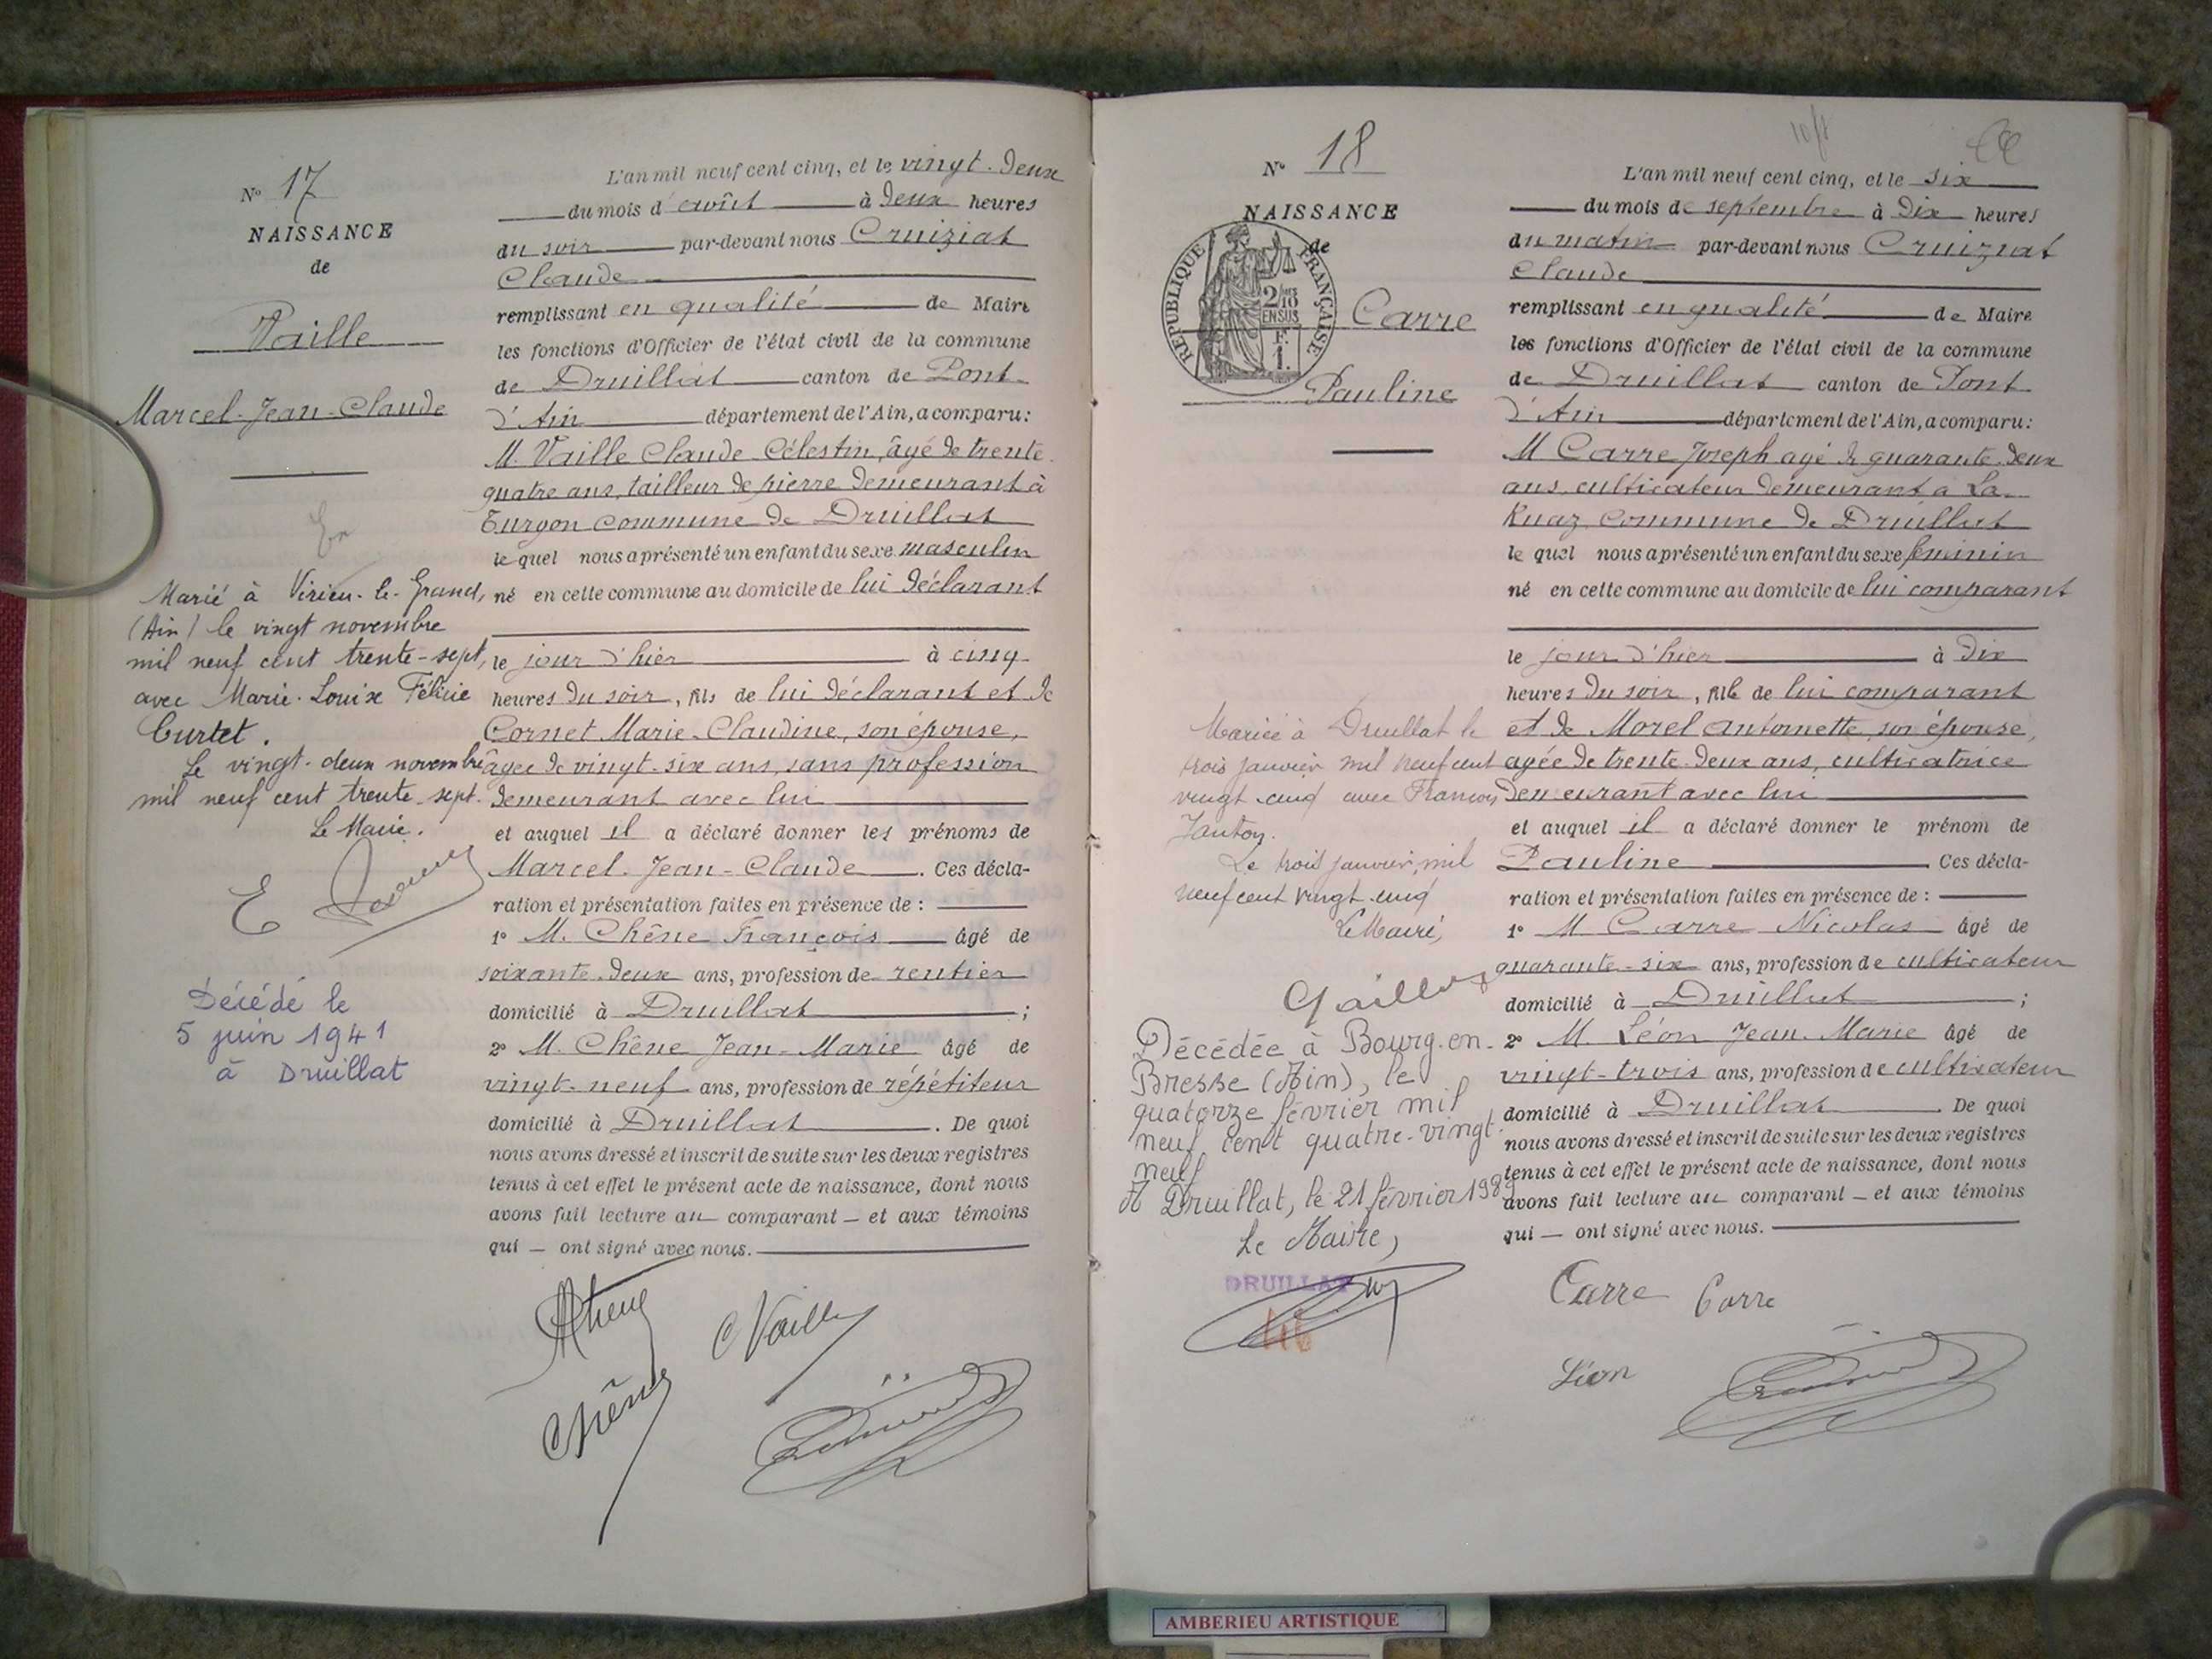 N° 17
NAISSANCE
de
Vaille
Marcel-Jean-Claude
Marié à Virieu-le-Grand,
(Ain) le vingt novembre
mil neuf cent trente-sept,
avec Marie-Louise Félicie
Curtet.
Le vingt-deux novembre
mil neuf cent trente-sept.
Le Maire.
Décédé le
5 juin 1941
à Druillat
L'an mil neuf cent cinq, et le vingt-deux
du mois d'août à deux heures
du soir par-devant nous Cruiziat
Claude
remplissant en qualité de Maire
les fonctions d'Officier de l'état civil de la commune
de Druillat canton de Pont-
d'Ain département de l'Ain, a comparu:
M. Vaille Claude-Célestin, âgé de trente-
quatre ans, tailleur de pierre demeurant à
Turgon commune de Druillat
le quel nous a présenté un enfant du sexe masculin
né en cette commune au domicile de lui déclarant
le jour d'hier à cinq
heures du soir, fils de lui déclarant et de
Cornet Marie-Claudine, son épouse,
âgée de vingt-six ans, sans profession
demeurant avec lui
et auquel il a déclaré donner les prénoms de
Marcel-Jean-Claude. Ces décla-
ration et présentation faites en présence de :
1° M. Chêne François âgé de
soixante-deux ans, profession de rentier
domicilié à Druillat ;
2° M. Chêne Jean-Marie âgé de
vingt-neuf ans, profession de répétiteur
domicilié à Druillat. De quoi
nous avons dressé et inscrit de suite sur les deux registres
tenus à cet effet le présent acte de naissance, dont nous
avons fait lecture au comparant - et aux témoins
qui - ont signé avec nous.
C Vaille
Chêne
N° 18
NAISSANCE
de
REPUBLIQUE FRANÇAISE
2/10
EN SUS
F.
1.
Carre
Pauline
Mariée à Druillat le
trois janvier mil neuf cent
vingt-cinq avec François
Le trois janvier mil
neuf cent vingt-cinq
Le Maire,
Décédée à Bourg-en-
Bresse (Ain), le
quatorze février mil
neuf cent quatre-vingt-
neuf
A Druillat, le 21 février 1989
Le Maire,
DRUILLAT
L'an mil neuf cent cinq, et le six
du mois de septembre à dix heures
du matin par-devant nous Cruiziat
Claude
remplissant en qualité de Maire
les fonctions d'Officier de l'état civil de la commune
de Druillat canton de Pont
d'Ain département de l'Ain, a comparu:
M Carre Joseph agé de quarante-deux
ans, cultivateur demeurant à La
Ruaz, commune de Druillat
le quel nous a présenté un enfant du sexe féminin
né en cette commune au domicile de lui comparant
le jour d'hier à dix
heures du soir, fille de lui comparant
et de Morel Antoinette, son épouse,
agée de trente-deux ans, cultivatrice
demeurant avec lui
et auquel il a déclaré donner le prénom de
Pauline. Ces décla-
ration et présentation faites en présence de :
1° M Carre Nicolas âgé de
quarante-six ans, profession de cultivateur
domicilié à Druillat ;
2° M. Léon Jean-Marie âgé de
vingt-trois ans, profession de cultivateur
domicilié à Druillat. De quoi
nous avons dressé et inscrit de suite sur les deux registres
tenus à cet effet le présent acte de naissance, dont nous
avons fait lecture au comparant - et aux témoins
qui - ont signé avec nous.
Carre Carre
Léon
AMBERIEU ARTISTIQUE